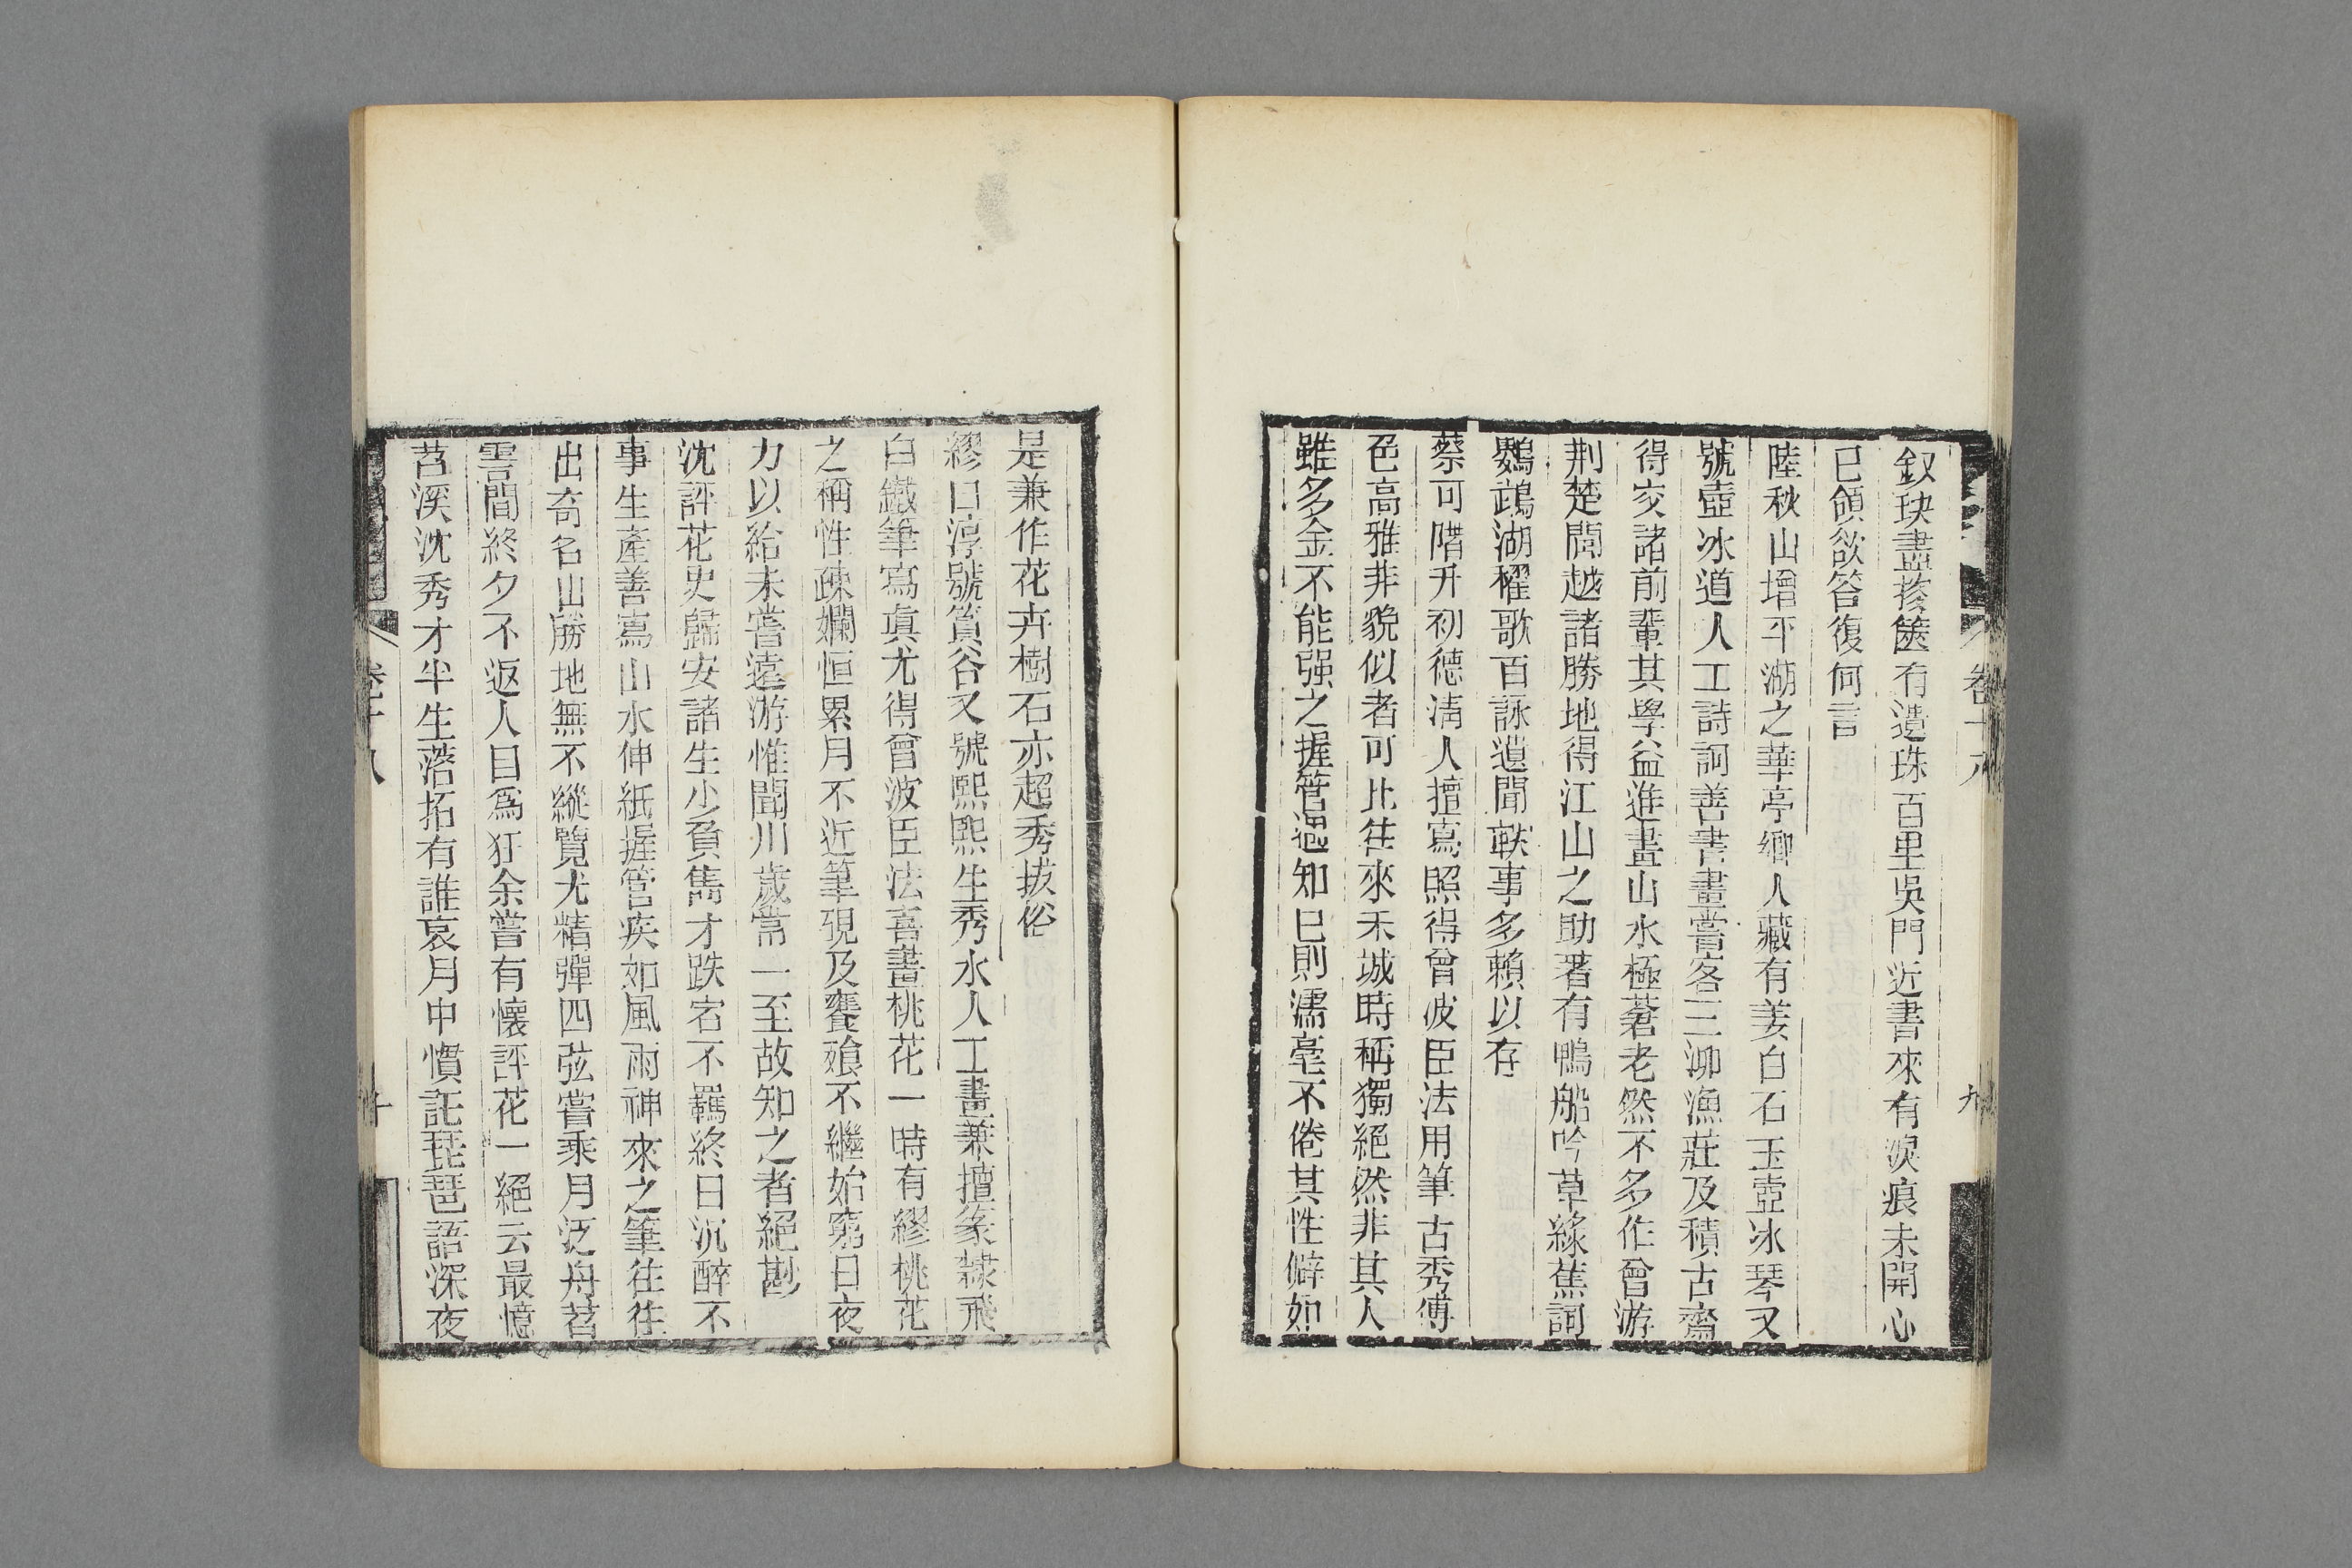 釵玦盡搜篋有遺珠百里吳門近書來有淚痕未開心
已領欲答復何言
陸秋山增平湖之華亭鄉人藏有姜白石玉壺冰琴又
號壺冰道人工詩詞善書畫嘗客三泖漁莊及積古齋
得交諸前輩其學益進畫山水極蒼老然不多作曾游
荆楚閩越諸勝地得江山之助著有鴨船吟草綠蕉詞
鸚鵡湖櫂歌百詠遺聞軼事多賴以存
蔡可階升初德清人擅寫照得曾波臣法用筆古秀傅
色高雅非貌似者可比往來禾城時稱獨絕然非其人
雖多金不能强之握管遇知已則濡毫不倦其性僻如
卷十八
九
是兼作花卉樹石亦超秀拔俗
繆口淳號篔谷又號熙熙生秀水人工畫兼擅篆隸飛
白鐵筆寫眞尤得曾波臣法喜畫桃花一時有繆桃花
之稱性疎嬾恒累月不近筆硯及饔飧不繼始窮日夜
力以給未嘗遠游惟聞川歲常一二至故知之者絕尠
沈評花史歸安諸生少負雋才跌宕不羈終日沉醉不
事生產善寫山水伸紙握管疾如風雨神來之筆往往
出奇名山勝地無不縱覽尤精彈四弦嘗乘月泛舟苕
霅間終夕不返人目爲狂余嘗有懷評花一絕云最憶
苕溪沈秀才半生落拓有誰哀月中慣託琵琶語深夜
卷十八
十